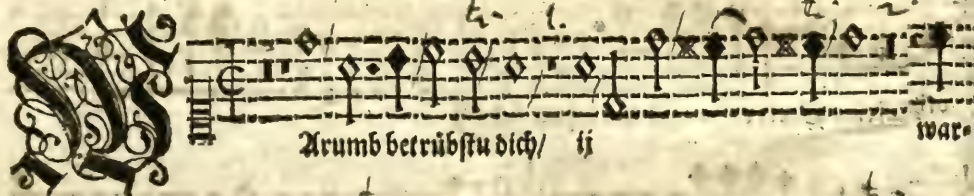 WArumb betrübstu dich/ ij war-